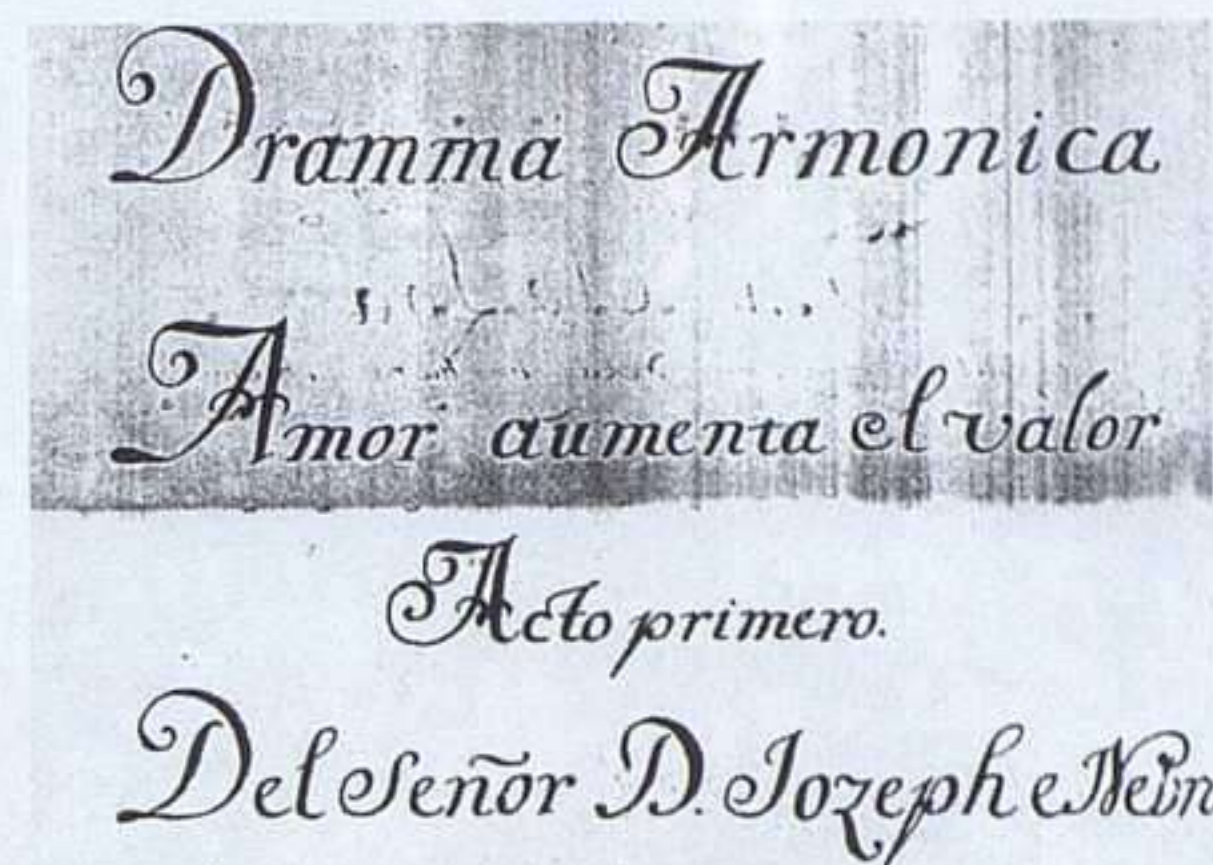 Dramma Armonica
Amor aumenta el valor
Acto primero.
Del Señor D. Jozeph e